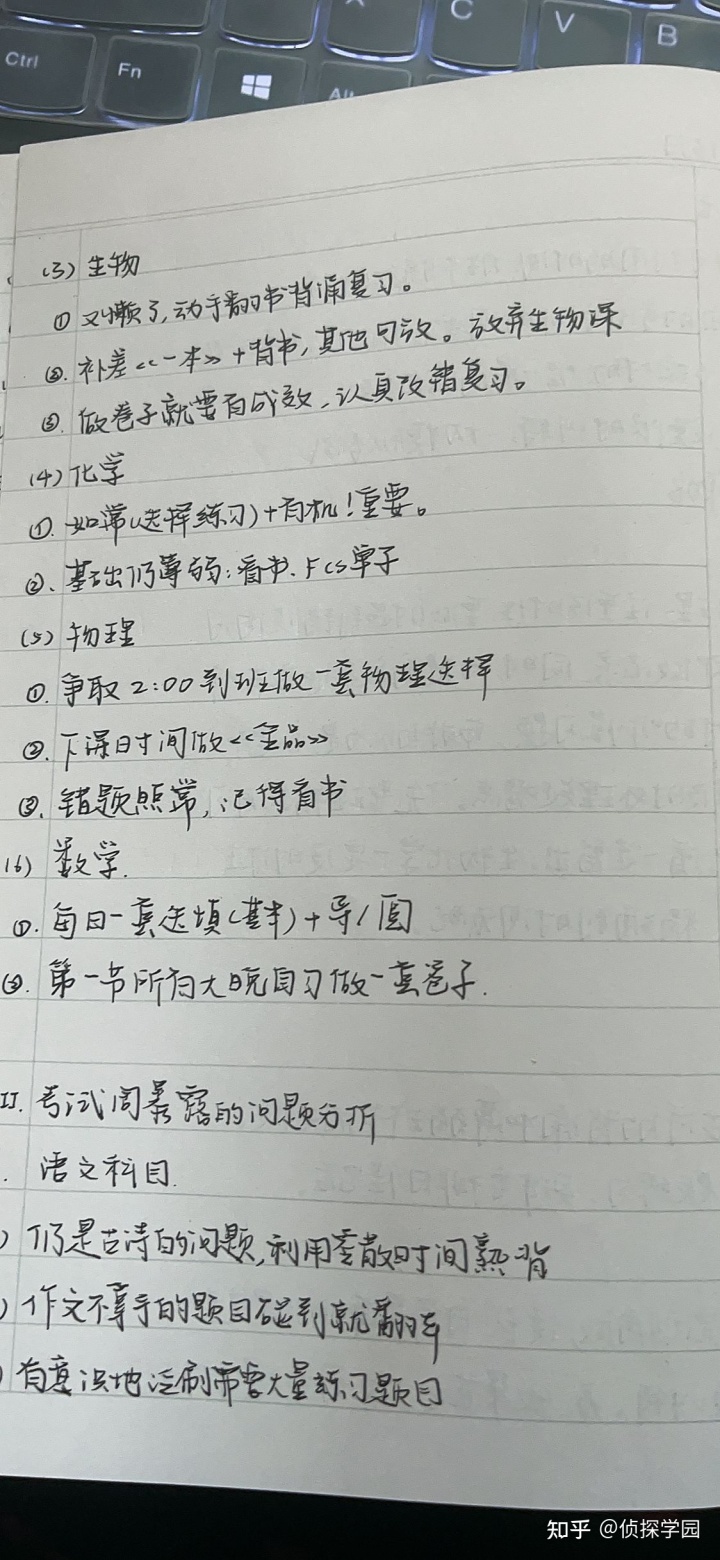 C
V
B
Ctrl
Fn
Alt
(3) 生物
①又懒了,动手翻书背诵复习。
②. 补差<<一本>>+背书,其他可放。放弃生物课
③. 做卷子就要有成效,认真改错复习。
(4) 化学
①. 如常(选择练习)+有机!重要。
②. 基础仍薄弱:看书、FCS单子
(5) 物理
①. 争取2:00到班做一套物理选择
②. 下课时间做<<金品>>
③. 错题照常,记得看书
(6) 数学.
①. 每日一套选填(基本)+导/圆
②. 第一节所有大晚自习做一套卷子.
II. 考试周暴露的问题分析
. 语文科目.
) 仍是古诗的问题,利用零散时间熟背
) 作文不拿手的题目碰到就翻车
) 有意识地泛刷需要大量练习题目
知乎 @侦探学园